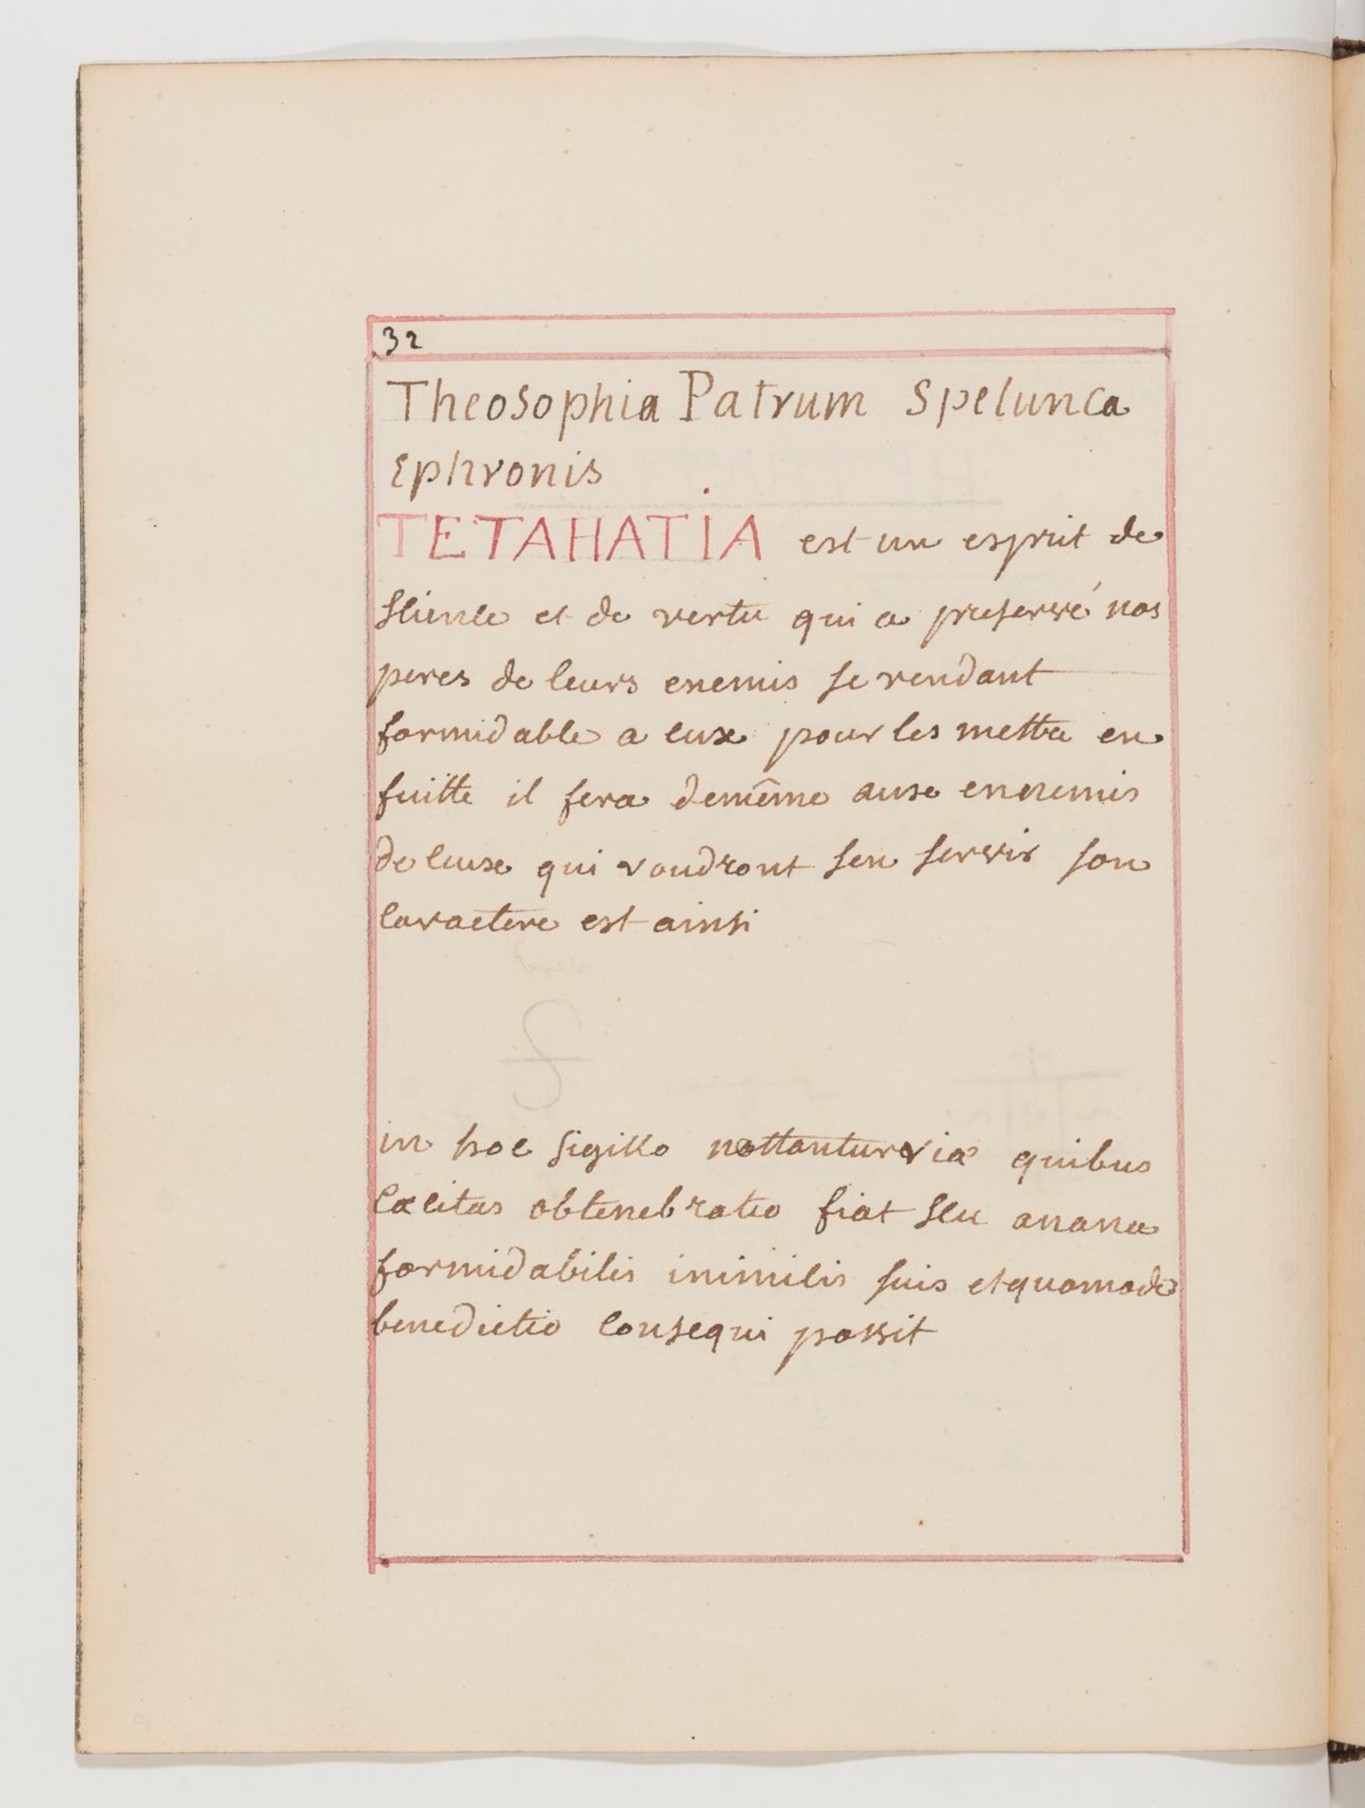 32
Theosophia Patrum Spelunca
Ephronis
TETAHATIA est un esprit de
science et de vertu qui a preservé nos
peres de leurs enemis se rendant
formidable a eux pour les mettre en
fuitte il fera demême aux ennemis
de ceux qui voudront sen servir son
caractere est ainsi
in hoc sigillo nottantur viæ quibus
cæcitas obtenebratio fiat seu
formidabilis inimicis suis et quomodo
benedictio consequi possit